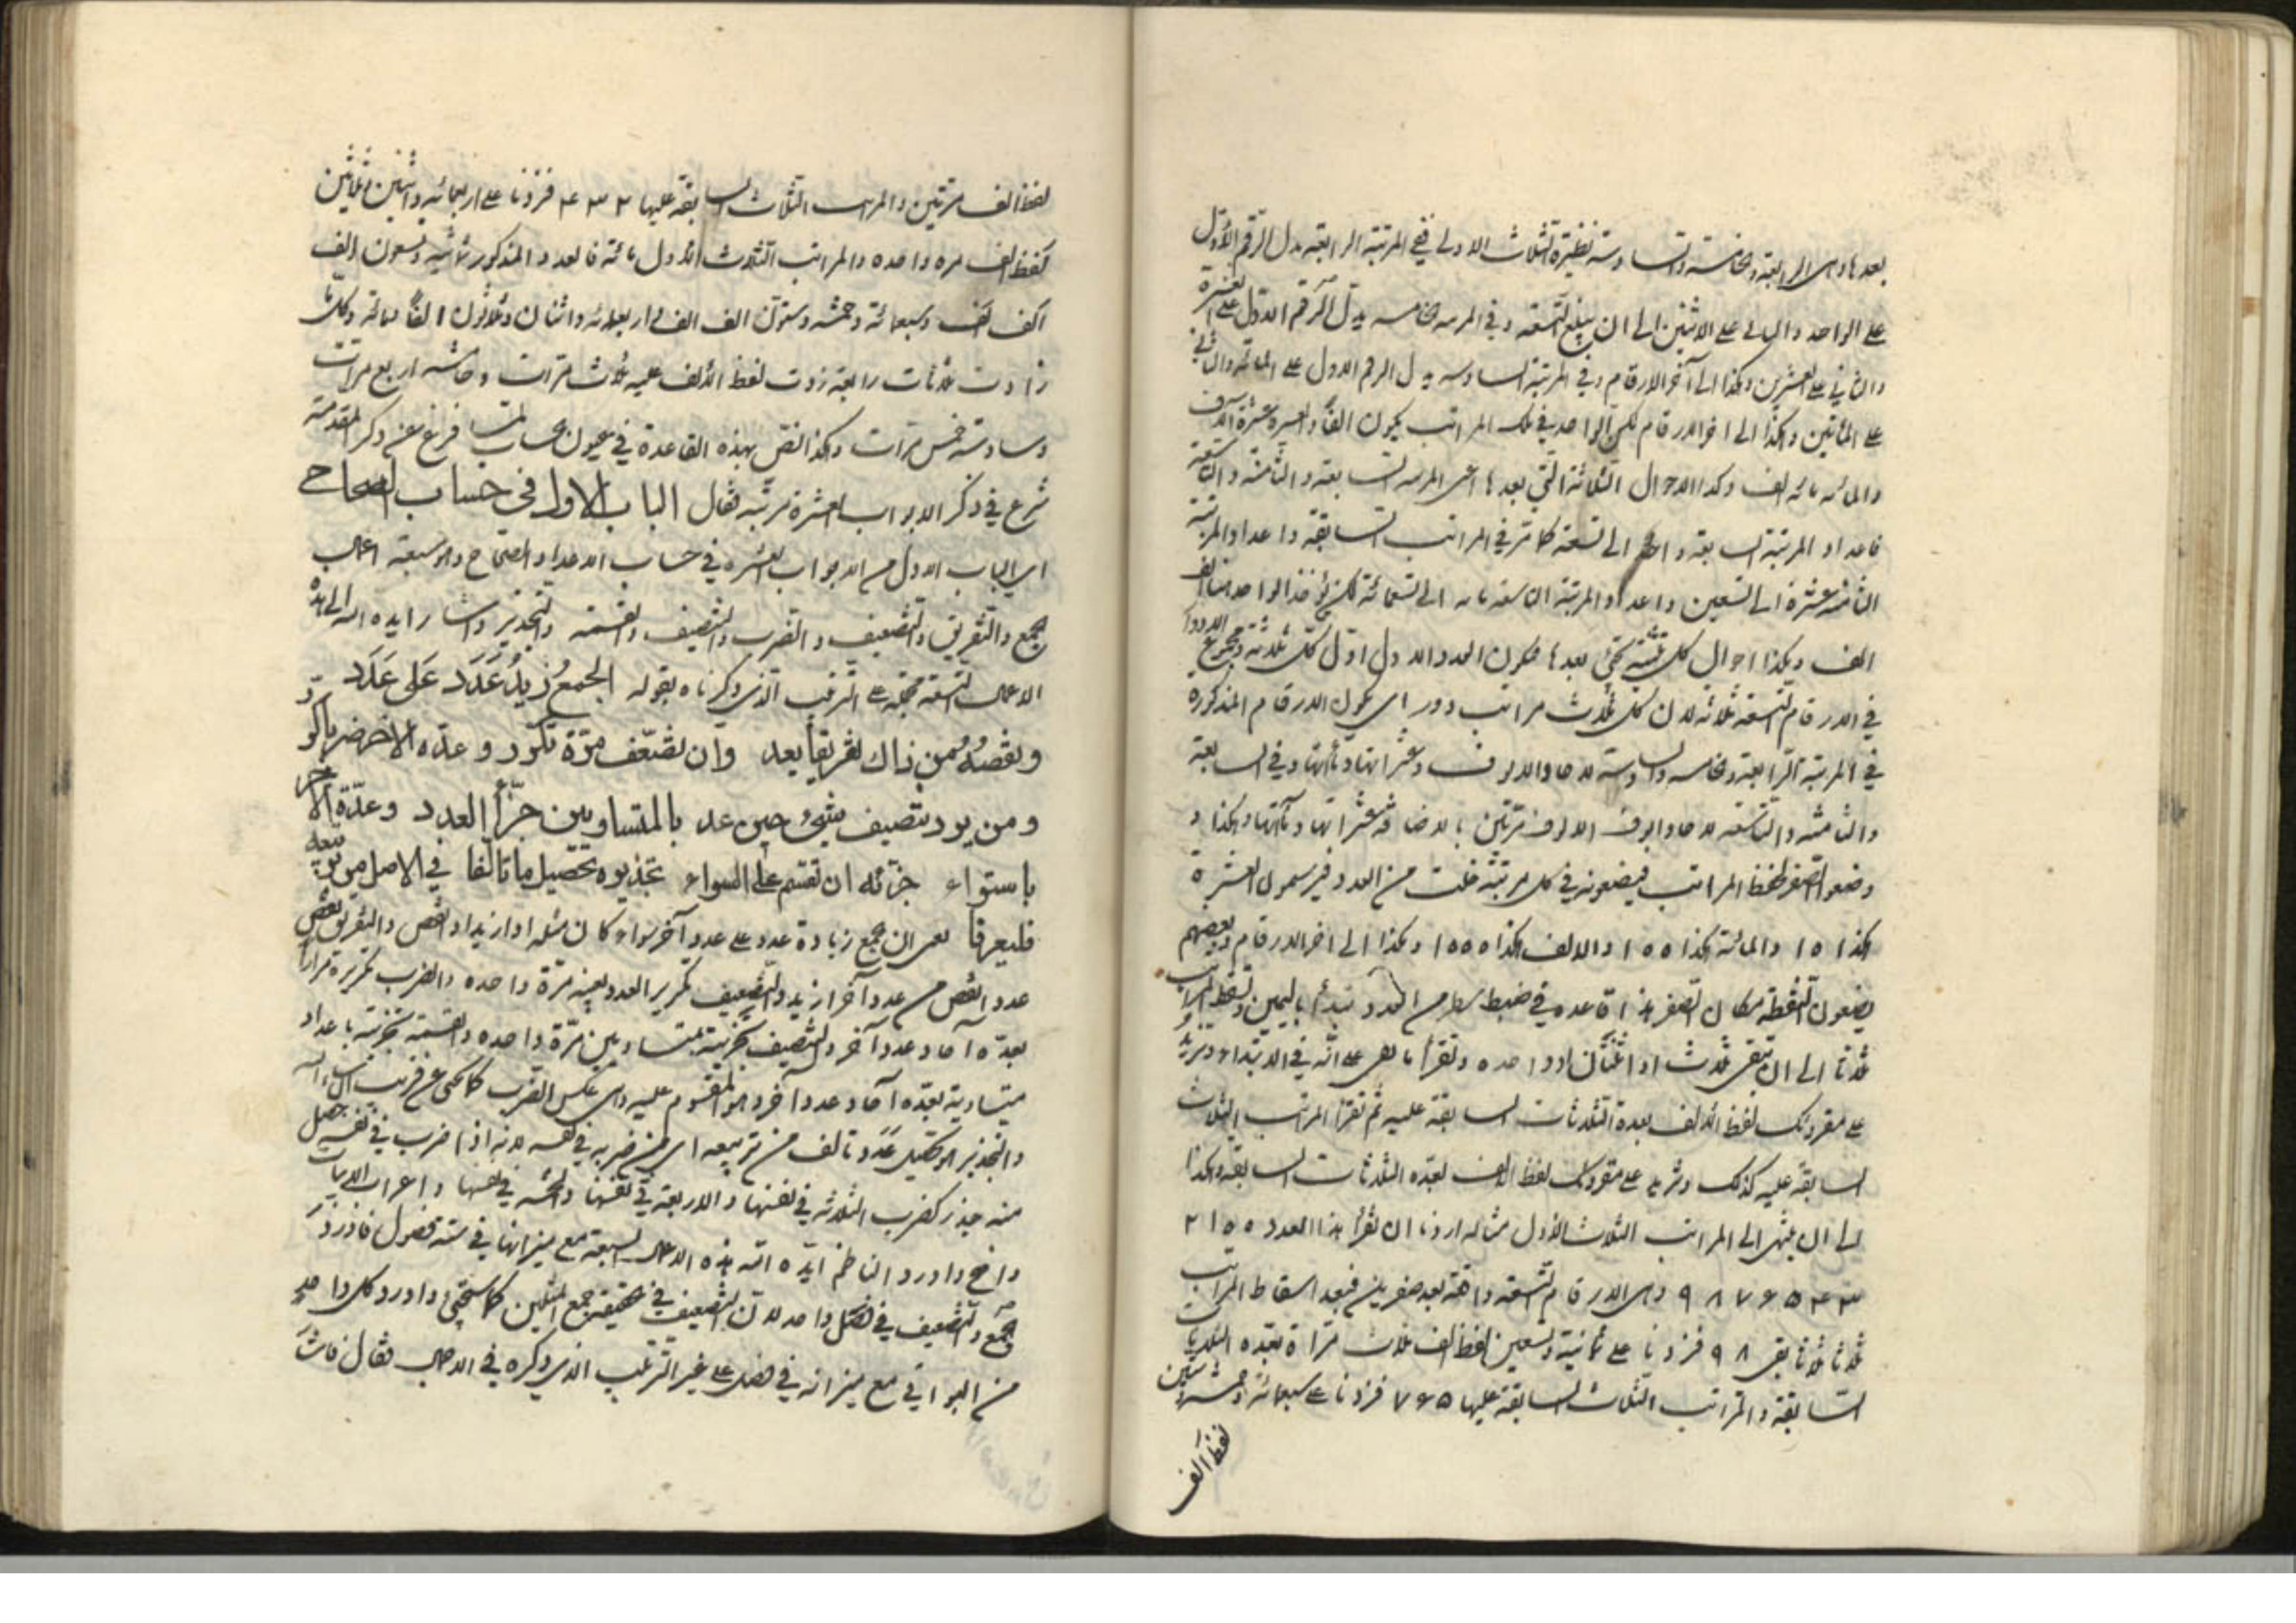 بعدها وهى الرابعة والخامسة والسادسة نظيرة الثلاث الاولى ففى المرتبة الرابعة يدل الرقم الاول
على الواحد والثانى على الاثنين الى ان يبلغ التسعة وفى المرتبة الخامسة يدل الرقم الاول على العشرة
والثانى على العشرين وهكذا الى آخر الارقام وفى المرتبة السادسة يدل الرقم الاول على المائة والثانى
على المائتين وهكذا الى اخر الارقام لكن الواحد فى تلك المراتب يكون الفا والعشرة عشرة آلاف
والمائة مائة الف وكذا الاحوال الثلاثة التى بعدها اعنى المرتبة السابعة والثامنة والتاسعة
فاعداد المرتبة السابعة واحد الى تسعة كما مر فى المراتب السابقة واعداد المرتبة
الثامنة عشرة الى تسعين واعداد المرتبة التاسعة مائة الى تسعمائة لكن يؤخذ الواحد هنا الف
الف وهكذا احوال كل ستة تجئ بعدها فيكون العدد الاول اول كل ثلاثة ومجموع الادوار
فى الارقام التسعة ثلاثة لان كل ثلاث مراتب دور اى يكون الارقام المذكورة
فى المرتبة الرابعة والخامسة والسادسة لآحاد الالوف وعشراتها ومآتها وفى السابعة
والثامنة والتاسعة لآحاد الوف الالوف مرتين بالاضافة وعشراتها ومآتها وهكذا و
وضعوا الصفر لحفظ المراتب فيضعونه فى كل مرتبة خلت من العدد فيرسمون العشرة
هكذا ١٥ والمائة هكذا ١٥٥ والالف هكذا ١٥٥٥ وهكذا الى اخر الارقام وبعضهم
يضعون النقطة مكان الصفر هذا قاعدة فى ضبط من العدد تبدأ باليمين وتسقط المراتب
ثلاثا الى ان تبقى ثلاث او اثنتان او واحدة وتقرأ ما بقى على انه فى الابتداء وتزيد
على مقروئك لفظ الالف بعدة الثلاثات السابقة عليه ثم تقرأ المراتب الثلاث
السابقة عليه كذلك وتزيد على مقروئك لفظ الالف بعدة الثلاثات السابقة وهكذا
الى ان ينتهى الى المراتب الثلاث الاول مثاله اردنا ان نقرأ هذا العدد ٢١٥٥
٩٨٧۶۵۴۳ وهى الارقام التسعة واقعة بعد صفرين فبعد اسقاط المراتب
ثلاثا ثلاثا بقى ٩٨ فزدنا على ثمانية وتسعين لفظ الف ثلاث مرات بعدة الثلاثات
السابقة والمراتب الثلاث السابقة عليها ٧۶۵ فزدنا على سبعمائة وخمسة وستين
لفظ الف
لفظ الف مرتين والمراتب الثلاث السابقة عليها ۴٣٢ فزدنا على اربعمائة واثنين وثلثين
لفظ الف مرة واحدة والمراتب الثلاث الاول مائة فالعدد المذكور ثمانية وتسعون الف
الف الف وسبعمائة وخمسة وستون الف الف واربعمائة واثنان وثلاثون الفا ومائة وكلما
زادت ثلاثات رابعة زدت لفظ الالف عليه ثلاث مرات وخامسة اربع مرات
وسادسة خمس مرات وهكذا نص بهذه القاعدة فى عيون الحساب لما فرغ عن ذكر المقدمة
شرع فى ذكر الابواب العشرة مرتبة فقال الباب الاول فى حساب الصحاح
اى الباب الاول من الابواب العشرة فى حساب الاعداد الصحاح وهو سبعة اعمال
الجمع والتفريق والتضعيف والضرب والتنصيف والقسمة والتجذير واشار ايده الله الى هذه
الاعمال السبعة على الترتيب الذى ذكرناه بقوله الجمع زيد عدد على عدد
ونقصه من ذاك تفريقا يعد وان تضعف مرة تكرر وعدة الاخر ضربا
ومن يرد تنصيف شئ حين عد بالمتساويين جزأ العدد وعدة الاخر
باستواء جزئه ان تقسم على السواء تجذيره تحصيل ما تالفا فى الاصل من تربيعه
فليعرفا يعنى ان الجمع زيادة عدد على عدد آخر سواء كان مثله او ازيد او انقص والتفريق نقص
عدد انقص من عدد آخر ازيد والتضعيف تكرير العدد بعينه مرة واحدة والضرب تكريره مرارا
بعدة آحاد عدد آخر والتنصيف تجزيته بمتساويين مرة واحدة والقسمة تجزيته باعداد
متساوية بعدة آحاد عدد آخر وهو المقسوم عليه وهى عكس الضرب كما تجئ عن قريب ان شاء الله
والتجذير هو تحصيل عدد تالف من تربيعه اى من ضربه فى نفسه لانه اذا ضرب فى نفسه حصل
منه جذر كضرب الثلاثة فى نفسها والاربعة فى نفسها والخمسة فى نفسها واعراب الابيات
واضح واورد الناظم ايده الله هذه الاعمال السبعة مع ميزانها فى ستة فصول فاورد
الجمع والتضعيف فى فصل واحد لان التضعيف فى الحقيقة جمع المثلين كما ستجئ واورد كل واحد
من البواقى مع ميزانه فى فصل على غير الترتيب الذى ذكره فى الاجمال فقال